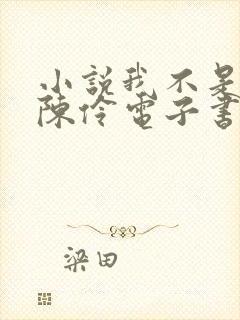 小說我不是
陳伶電子書
梁田